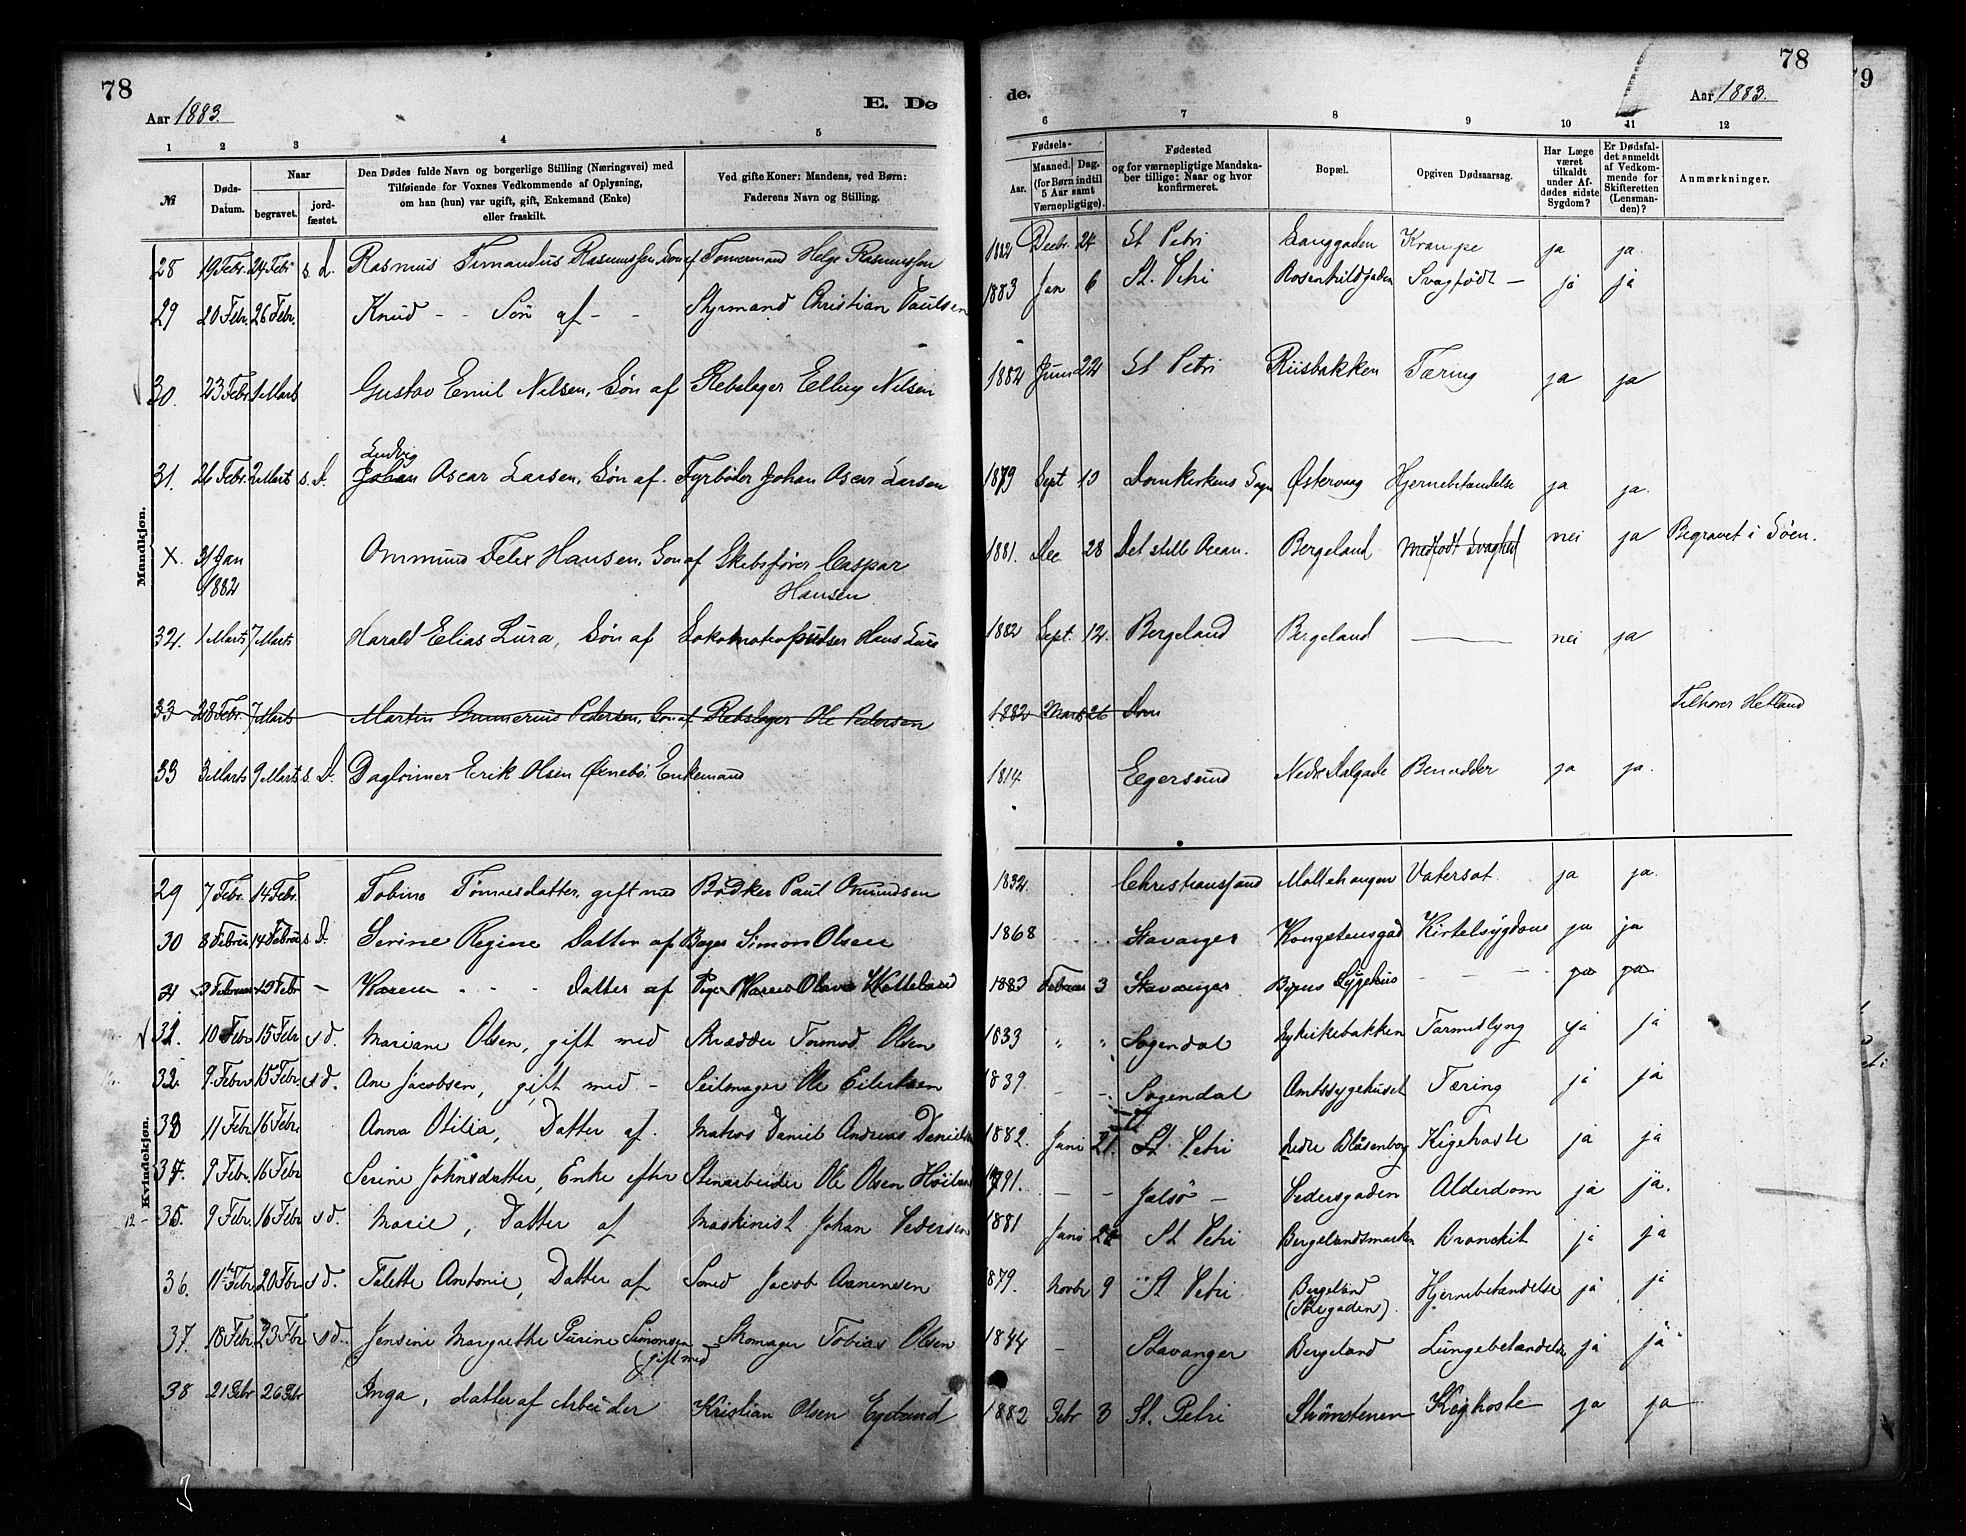 78
Aar 1883.
E. De
1 2 3 4 5
№
Døds-Datum.
Naar
begravet.
jord-fæstet.
Den Dødes fulde Navn og borgerlige Stilling (Næringsvei) med
Tilføiende for Voxnes Vedkommende af Oplysning,
om han (hun) var ugift, gift, Enkemand (Enke)
eller fraskilt.
Ved gifte Koner: Mandens, ved Børn:
Faderens Navn og Stilling.
de.
78
Aar 1883.
79
6 7 8 9 10 11 12
Fødsels-
Aar.
Maaned. Dag.
(for Børn indtil
5 Aar samt
Værnepligtige).
Fødested
og for værnepligtige Mandska-
ber tillige: Naar og hvor
konfirmeret.
Bopæl.
Opgiven Dødsaarsag.
Har Læge
været
tilkaldt
under Af-
dødes sidste
Sygdom?
Er Dødsfal-
det anmeldt
af Vedkom-
mende for
Skifteretten
(Lensman-
den)?
Anmærkninger.
Mandkjøn.
28 19 Febr. 24 Febr s. d. Rasmus Fernandus Rasmussen Søn af Tømermand Helge Rasmussen 1882 Decbr. 24 St Petri Langgaden Krampe ja ja.
29 20 Febr. 26 Febr. Knud - - Søn af - - Styrmand Christian Paulsen 1883 Jan 6 St. Petri Rosenkildgaden Svagfødt - ja ja
30. 23 Febr. 1 Marts Gustav Emil Nilsen, Søn af Rebslager Elling Nilsen 1882 Juni 22 St Petri Riisbakken Tæring ja ja
Ludvig
31. 26 Febr. 2 Marts s. d. Johan Oscar Larsen, Søn af Fyrbøder Johan Oscar Larsen 1879 Sept 10 Domkirkens Sogn Østervaag Hjernebetændelse ja ja.
X. 31 Jan 1882 Ommund Felix Hansen, Søn af Skibsfører Caspar Hansen 1881. Dec 28 Det stille Ocean. Bergeland Medfødt Svaghed nei ja Begravet i Søen.
32. 1 Marts 7 Marts Harald Elias Lura, Søn af Lokomotivpudser Hans Lura 1882 Sept. 12. Bergeland Bergeland — nei ja
33 28 Febr. 7 Marts Martin Gunnerius Pedersen, Søn af Rebslager Ole Pedersen 1882 Marts 26 Dom Tilhører Hetland
33 3 Marts 9 Marts s. d. Dagleiner Erik Olsen Ørnebø, Enkemand 1814 Egersund Nedr. Dalgade Benædder ja ja.
Kvindekjøn.
29 7 Febr. 14 Febr. Tobine Tønnesdatter, gift med Bødker Paul Omundsen 1832. Christianssand Møllehaugen Vatersot ja ja.
30 8 Februar 14 Februar s. d. Serine Regine Datter af Bager Simon Olsen 1868 Stavanger Kongstensgad Kirtelsygdom ja ja
31 9 Februar 15 Febr - Karen - - - Datter af Pige Karen Olava Hatteland 1883 Februar 3 Stavanger Byens Sygehus - - - ja ja
31. 10 Febr 15 Febr s d. Mariane Olsen, gift med Skrædder Tormod Olsen 1833 " " Sogendal Nykirkebakken Tarmeslyng ja ja
32. 9 Febr 15 Febr. s d. Ane Jacobsen, gift med - Seilmager Ole Eilertsen 1839. - - Sogendal Amtssygehuset Tæring ja ja
33 11 Febr 16 Febr. Anna Otilia, Datter af. Matros Daniel Andreas Danielsen 1882. Juni 21. St Petri Nedre Blåsenborg Kighoste ja ja
34. 9 Febr. 16 Febr Serine Johnsdatter, Enke efter Stenarbeider Ole Olsen Høiland 1791. - - Jælsø - Pedersgaden Alderdom ja ja.
12 - 35. 9 Febr. 16 Febr s d. Marie, Datter af Maskinist Johan Pedersen 1881 Juni St Petri Bergelandsmarken Bronchit ja ja
36. 11 Febr 20 Febr s d. Talette Antonie, Datter af Smed Jacob Aanensen 1879. Novbr 9 St Petri Bergeland Hjernebetændelse ja ja
37. 18 Febr. 23 Febr s d. Jensine Margrethe Perine Simonsen gift med Skomager Tobias Olsen 1844 - Stavanger Bergeland Lungebetændelse ja ja
38 21 Febr 26 Febr Inga, datter af Arbeider Kristian Olsen Egeland 1882 Febr 3 St. Petri Strømstenen Kighoste ja ja